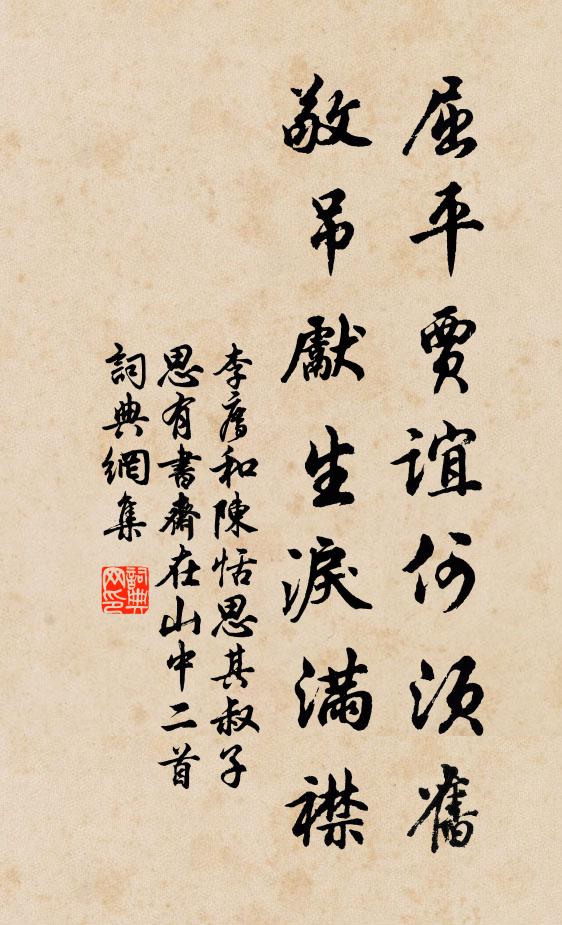 屈平賈誼何須舊
敬吊獻生淚滿襟
李廌和陳恬思其叔子
思有書齋在山中二首
詞典網集
詞典
网印